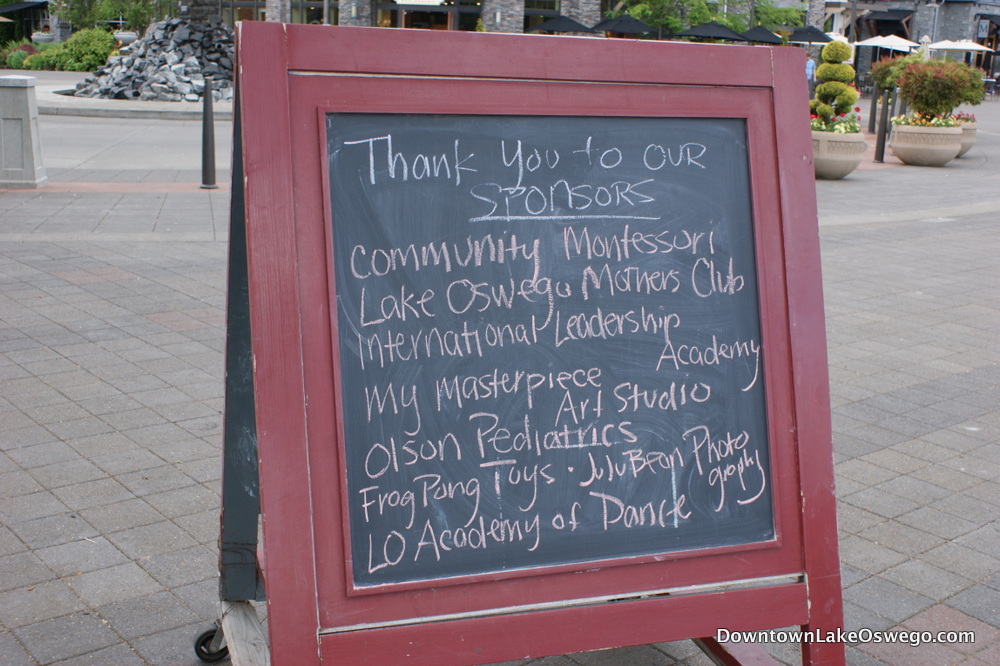 Thank you to our
Sponsors
Community Montessori
Lake Oswego Mothers Club
International Leadership
Academy
My Masterpiece
Art Studio
Olson Pediatrics
Frog Pong Toys · JuJuBean Photo
graphy
LO Academy of Dance
DowntownLakeOswego.com